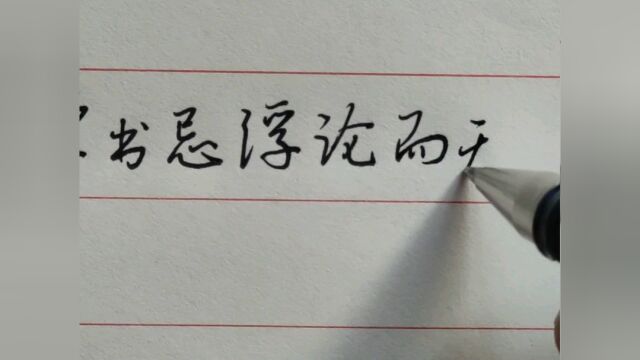 书忌浮论而